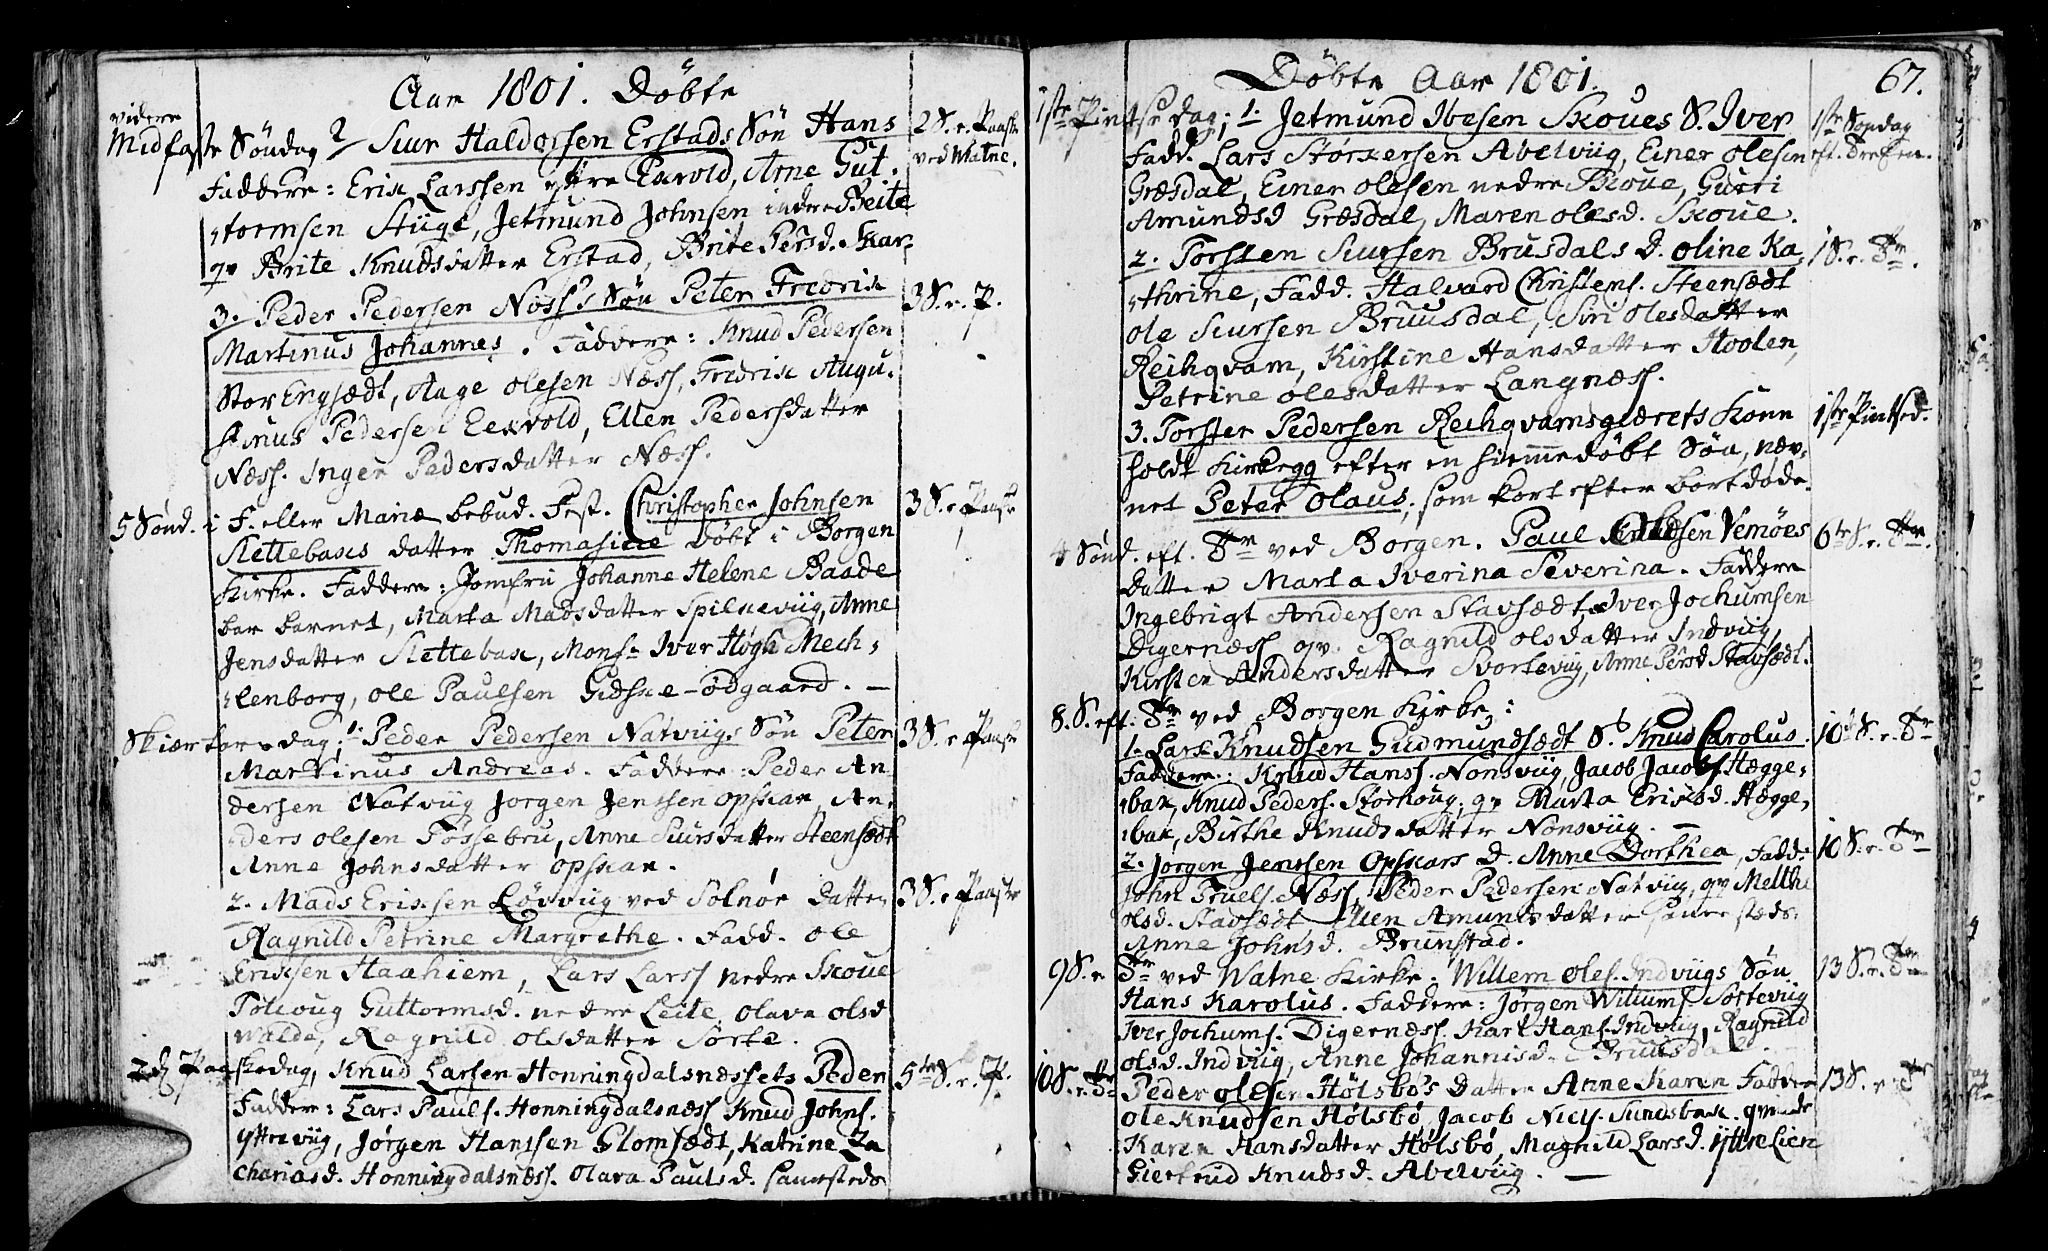 Aar 1801. Döbte
videre
Midfaste Söndag 2/ Siur Haldorsen Erstads Sön Hans
2 S. e. Paaske
ved Watne.
Faddere: Erik Larssen yttre Exvold, Arne Gut-
tormsen Stüge, Jetmund Johnsen indre Beite
qv Brite Knudsdatter Erstad, Brite Persd. Skar
3. Peder Pedersen Noss's Sön Peter Fredrik
3 S. e. P.
Martinus Johannes. Faddere: Knud Pedersen
Stor Engsædt, Aage olesen Næss, Fredrik Augu-
stinus Pedersen Eexvold, Ellen Pedersdatter
Næss. Inger Pedersdatter Næss.
5 Sönd. i F. eller Mariæ bebud. Fest. Christopher Johnsen
3 S. e. Paaske
Slettebaks datter Thomasine döbt i Borgen
Kirke. Faddere: Jomfru Johanne Helene Baade
bar barnet, Marta Madsdatter Spilkeviig, Anne
Jensdatter Slettebak, Monsr Iver Høgh Mech-
lenborg, ole Paulsen Gidske-ødgaard. —
Skiærtorsdag; 1. Peder Pedersen Natviigs Sön Peter
3 S. e. Paaske
Martinus Andreas. Faddere: Peder An-
dersen Natviig Jørgen Jenssen opskar, An-
ders olesen Fossebru, Anne Siursdatter Steensædt
Anne Johnsdatter opskar.
2. Mads Eriksen Løvviig ved Solnør datter
3 S. e. Paaske
Ragnild Petrine Margrethe. Fadd. ole
Eriksen Haahiem, Lars Larss nedre Skoue
Toloug Guttormsd. nedre Leite, olava olsd
Walde, Ragnild olsdatter Sorte.
2d. Paaskedag, Knud Larsen Honningdalsnæssets Peder
5te S. e. P.
Faddere: Lars Pauls. Honningdalsnæss Knud Johns.
yttreviig, Jørgen Hanssen Glomsædt, Katrine Za
chariasd. Honningdalsnæss. Olava Paulsd. sammesteds
Döbte Aar 1801.
67.
1ste Pintsedag; 1. Jetmund Ivesen Skoues S. Iver
1ste Søndag
eft. Trefen.
Fadd. Lars Størkersen Abelviig, Einer olesen
Græsdal, Einer olesen nedre Skoue, Guri
Amundsd Græsdal, Maren olesd. Skoue.
2. Torsten Siursen Brusdals D. oline Ka-
1 S. e. Tr.
thrine, Fadd. Halvard Christens. Steensædt
ole Siursen Bruusdal, Siri olesdatter
Reihqvam, Kirstine Hansdatter Hoolen,
Petrine olesdatter Langnæss.
3. Torsten Pedersen Reihqvamsgiærets Konn
1ste Pintsed.
holdt Kirkegg efter en hiemmedøbt Sön, næv-
net Peter Olaus, som kort efter bortdøde.
4 Sönd. eft. Tr ved Borgen. Paul Knudsen Vemøes
6te S. e. Tr.
datter Marta Iverina Severina. Faddere
Ingebrigt Andersen Stavsædt, Iver Jochumsen
Digernæss qv. Ragnild olsdatter Indviig,
Kirsten Andersdatter Svorteviig, Anne Persd Stavsædt.
8. S. eft. Tr ved Borgen Kirke:
1. Lars Knudsen Gudmundsædt S. Knud Carolus.
10de S. e. Tr
Faddere: Knud Hanss. Nonsviig, Jacob Jacobs. Hægge-
bak, Knud Peders. Storhoug; qv Marta Eriksd. Hægge-
bak, Birthe Knudsdatter Nonsviig. —
2. Jørgen Jenssen Opskars D. Anne Dorthea, Fadd.
10 S. e. Tr
John Truels. Næss, Peder Pedersen Natviig, qv Melthe
olsd. Stadsædt, Ellen Amundsdatter sammesteds.
Anne Johnsd. Brunstad.
9 S. e. Tr ved Watne Kirke. Willem oles. Indviigs Sön
13 S. e. Tr
Hans Karolus. Faddere: Jørgen Wiliums Sorteviig
Iver Jochums. Digernæss. Karl Hans. Indviig, Ragnild
olsd. Indviig, Anne Johannisd. Bruusdal.
10 S. e. Tr Peder olesen Hølsbø's datter Anne Karen Faddere
13 S. e. Tr
ole Knudsen Hølsbø, Jacob Niels. Sundsbak
Karen Hansdatter Hølsbø, Magnild Larsd. yttre Lien
Giertrud Knudsd. Abelviig. —